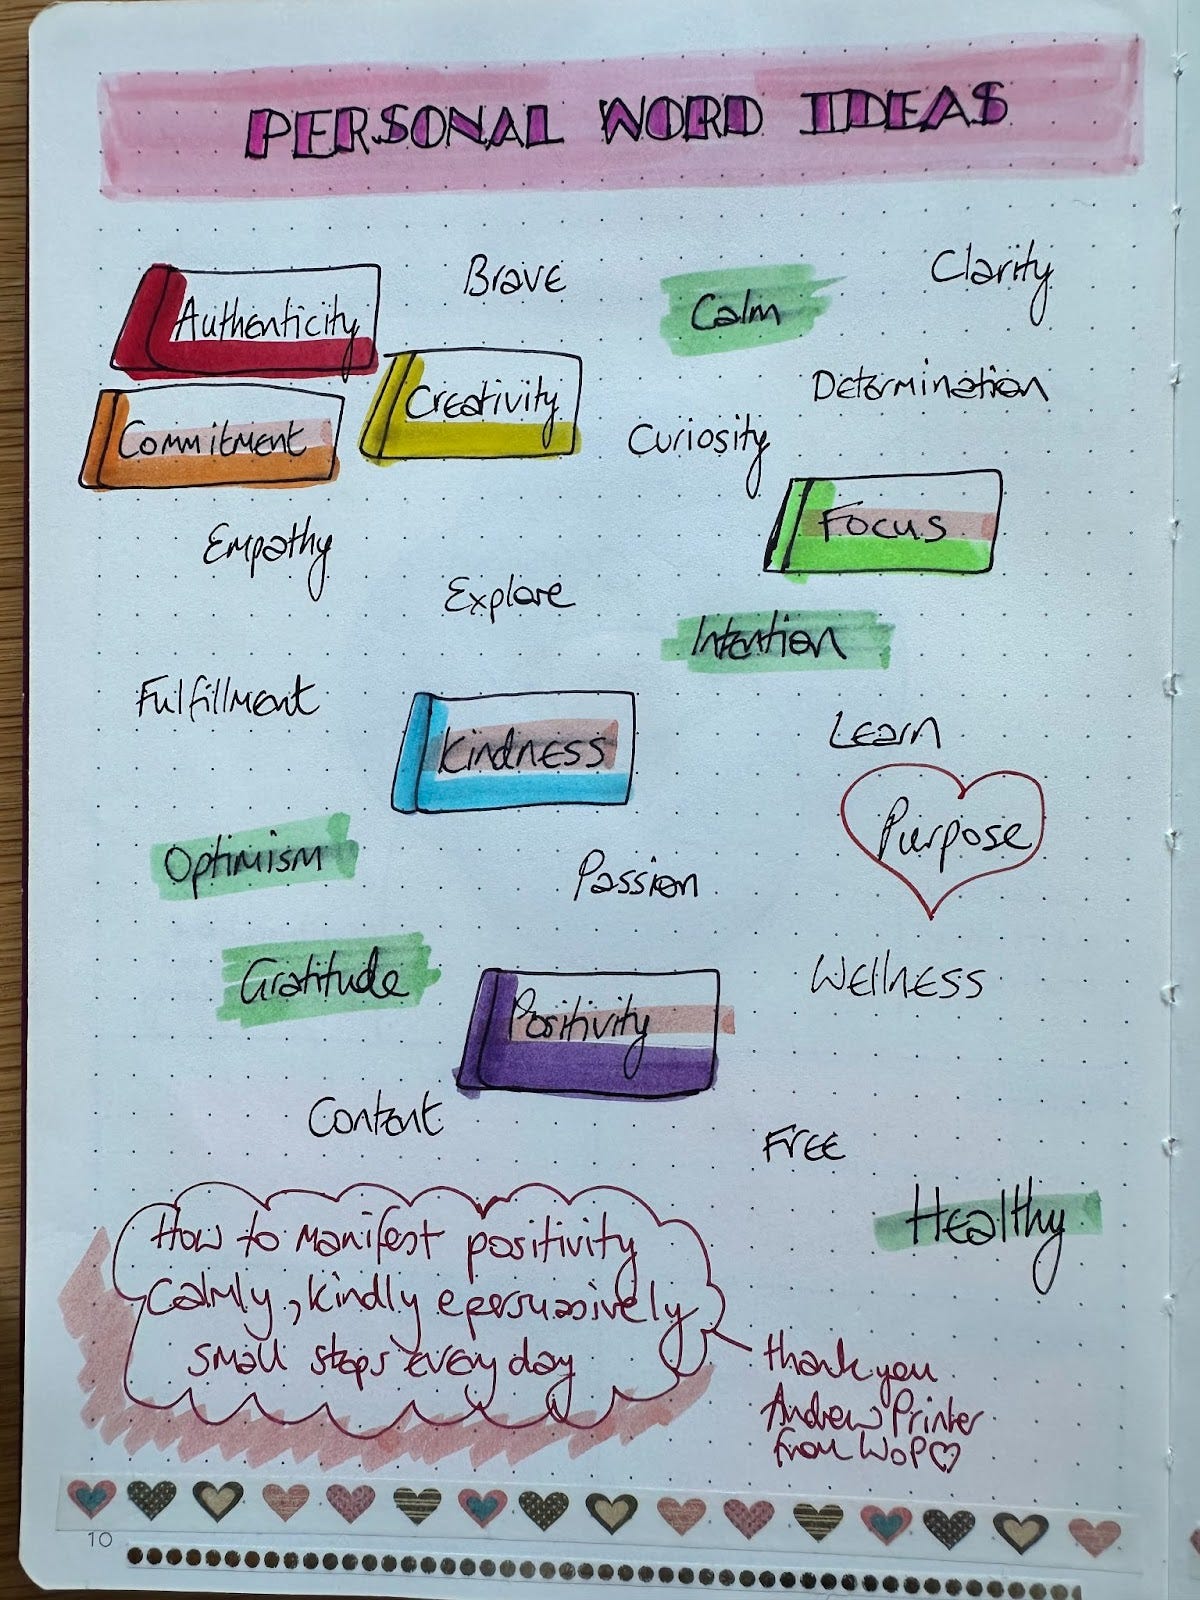 PERSONAL WORD IDEAS
Brave
Clarity
Authenticity
Calm
Creativity
Determination
Commitment
Curiosity
Focus
Empathy
Explore
Intention
Fulfillment
Learn
Kindness
Purpose
Optimism
Passion
Gratitude
Wellness
Positivity
Content
Free
Healthy
How to manifest positivity
Calmly, kindly e persuasively
small steps every day
thank you
Andrew Printer
from WoP♡
10